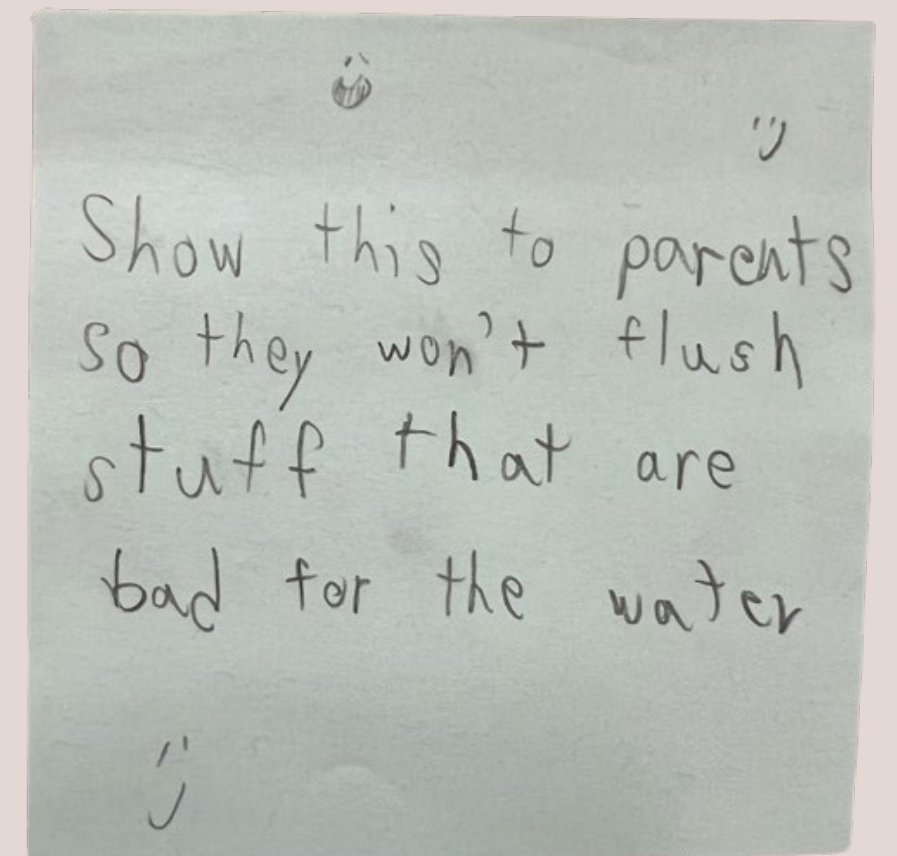 Show this to parents
so they won't flush
stuff that are
bad for the water